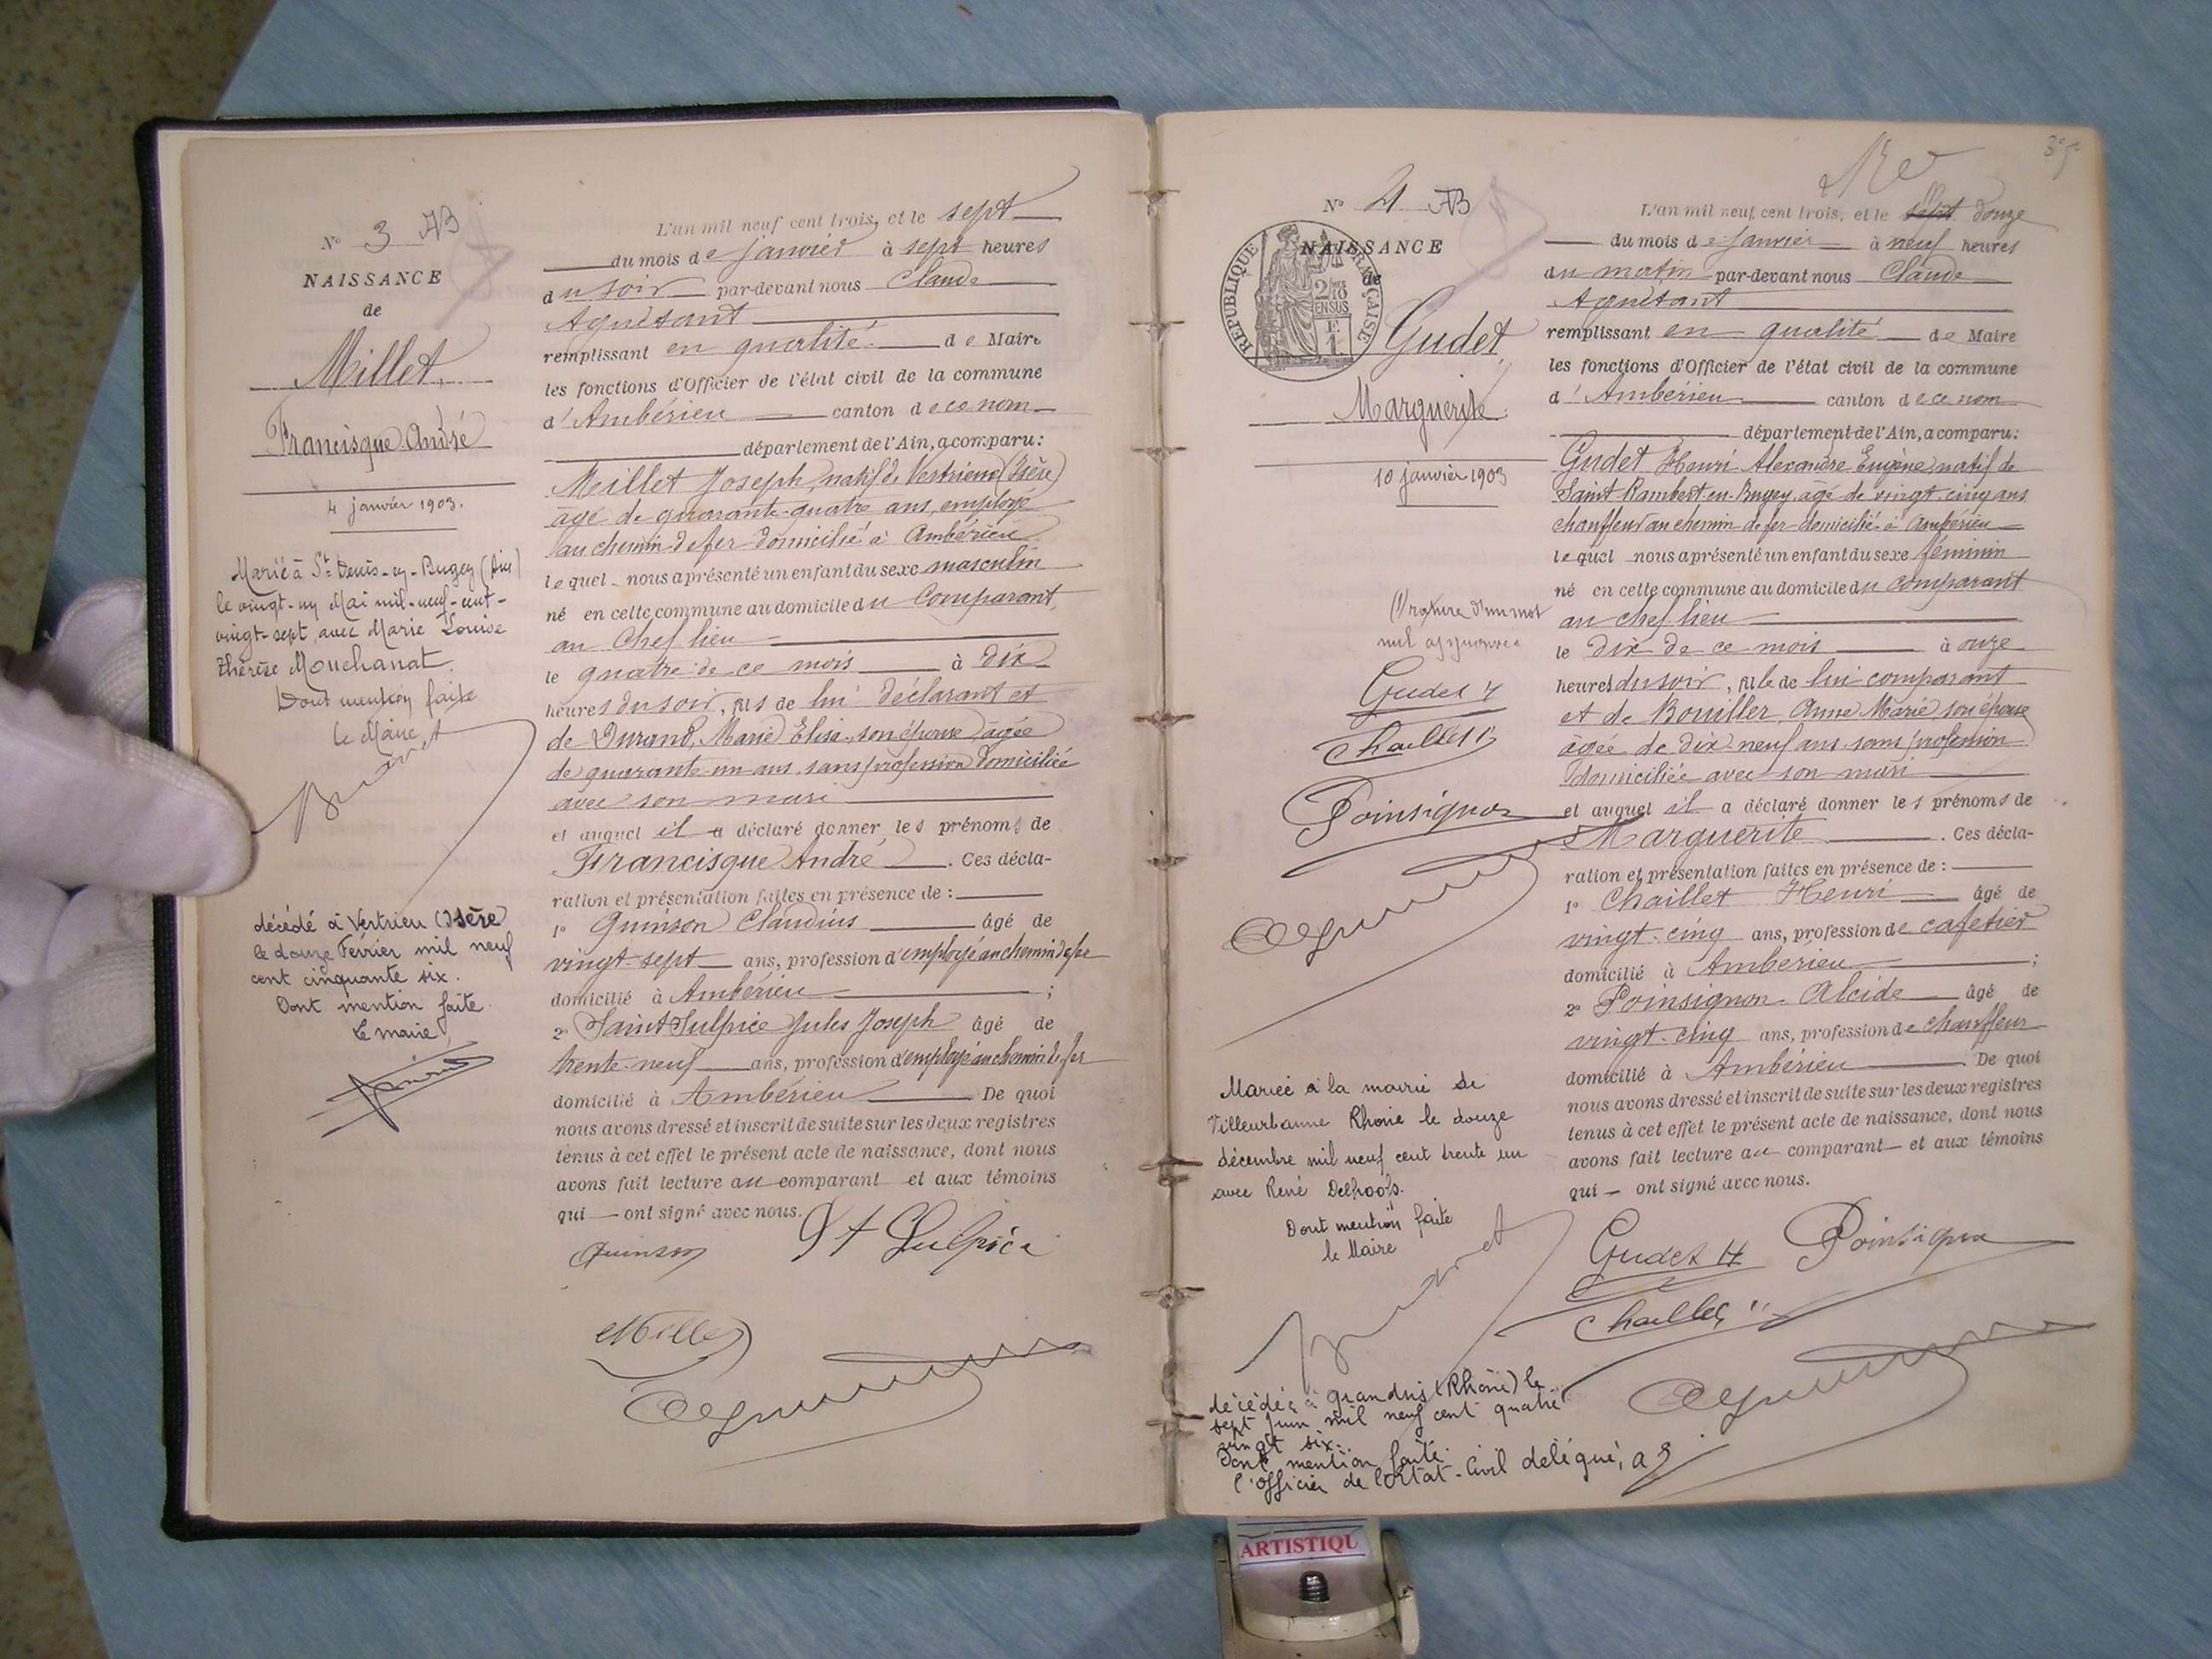 N° 3 AB
NAISSANCE
de
Millet
Francisque André
4 janvier 1903.
Marié à St Denis-en-Bugey (Ain)
le vingt-un Mai mil-neuf-cent-
vingt-sept, avec Marie Louise
Thérèse Mouchanat.
Dont mention faite
le Maire
décédé à Vertrieu (Isère
le douze Février mil neuf
cent cinquante six.
Dont mention faite.
le maire
L'an mil neuf cent trois, et le sept
du mois de janvier à sept heures
du soir par-devant nous Claude
Aguétant
remplissant en qualité de Maire
les fonctions d'Officier de l'état civil de la commune
d'Ambérieu canton de ce nom
département de l'Ain, a comparu:
Millet Joseph, natif de Vertrieu (Isère)
âgé de quarante-quatre ans, employé
au chemin de fer domicilié à Ambérieu
lequel nous a présenté un enfant du sexe masculin
né en cette commune au domicile du Comparant,
au Chef lieu
le quatre de ce mois à dix
heures du soir, fils de lui déclarant et
de Durand, Marie Elisa, son épouse âgée
de quarante-un ans, sans profession domiciliée
avec son mari
et auquel il a déclaré donner les prénoms de
Francisque André. Ces décla-
ration et présentation faites en présence de :
1° Quinson Claudius âgé de
vingt-sept ans, profession d'employé au chemin de fer
domicilié à Ambérieu ;
2° Saint Sulpice Jules Joseph âgé de
trente-neuf ans, profession d'employé au chemin de fer
domicilié à Ambérieu De quoi
nous avons dressé et inscrit de suite sur les deux registres
tenus à cet effet le présent acte de naissance, dont nous
avons fait lecture au comparant et aux témoins
qui — ont signé avec nous.
Quinson St Sulpice
Millet
Aguétant
35
N° 4 AB
NAISSANCE
de
RÉPUBLIQUE FRANÇAISE
2/10 EN SUS
Gudet
Marguerite
10 janvier 1903
(1) rature d'un mot
nul approuvée
Gudet H
Chaillet H
Poinsignon
Aguétant
Mariée à la mairie de
Villeurbanne Rhône le douze
décembre mil neuf cent trente un
avec René Delhoofs.
Dont mention faite
le Maire
décédée à Grandris (Rhône) le
sept juin mil neuf cent quatre
vingt six.
Dont mention faite.
l'officier de l'Etat-Civil délégué,
L'an mil neuf cent trois, et le sept douze
du mois de janvier à neuf heures
du matin par-devant nous Claude
Aguétant
remplissant en qualité de Maire
les fonctions d'Officier de l'état civil de la commune
d'Ambérieu canton de ce nom
département de l'Ain, a comparu:
Gudet Henri Alexandre Eugène, natif de
Saint Rambert-en-Bugey, âgé de vingt-cinq ans
chauffeur au chemin de fer domicilié à Ambérieu
lequel nous a présenté un enfant du sexe féminin
né en cette commune au domicile du comparant
au chef lieu
le dix de ce mois à onze
heures du soir, fille de lui comparant
et de Bouiller, Anne Marie, son épouse
âgée de dix-neuf ans sans profession
domiciliée avec son mari
et auquel il a déclaré donner les prénoms de
Marguerite. Ces décla-
ration et présentation faites en présence de :
1° Chaillet Henri âgé de
vingt-cinq ans, profession de cafetier
domicilié à Ambérieu ;
2° Poinsignon Alcide âgé de
vingt-cinq ans, profession de chauffeur
domicilié à Ambérieu De quoi
nous avons dressé et inscrit de suite sur les deux registres
tenus à cet effet le présent acte de naissance, dont nous
avons fait lecture au comparant et aux témoins
qui — ont signé avec nous.
Gudet H Poinsignon
Chaillet H
Aguétant
ARTISTIQU